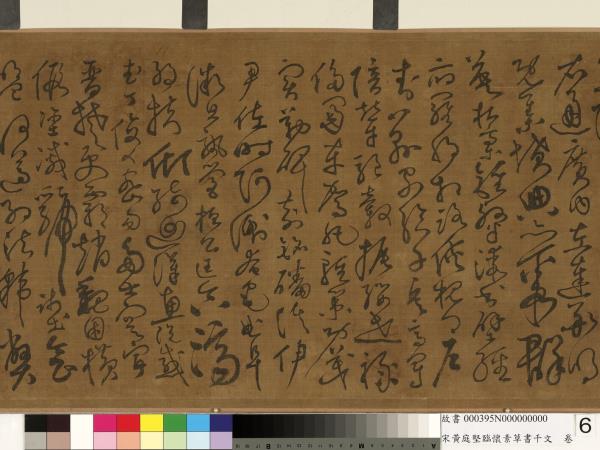 右通廣內左達承明
既集墳典亦聚群
英杜稾鍾隸漆書壁經
府羅將相路俠槐卿戶
封八縣家給千兵高冠
陪輦驅轂振纓世祿
侈富車駕肥輕策功茂
實勒碑刻銘磻溪伊
尹佐時阿衡奄宅曲阜
微旦孰營桓公匡合濟
弱扶傾綺迴漢惠說感
武丁俊乂密勿多士寔寧
晉楚更霸趙魏困橫
假途滅虢踐土會
盟何遵約法韓弊
故書 000395N000000000
宋黃庭堅臨懷素草書千文 卷
6